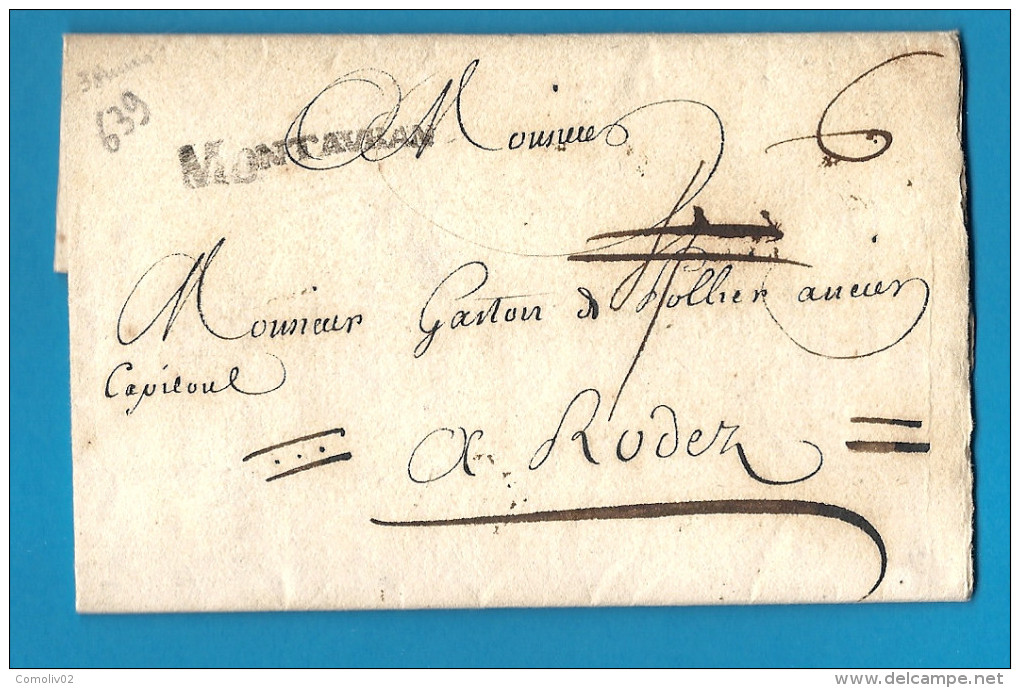 639
MONTAUBAN
Monsieur
6
Monsieur Gaston de Pollier ancien
Capitoul
a Rodez
Comoliv02
www.delcampe.net